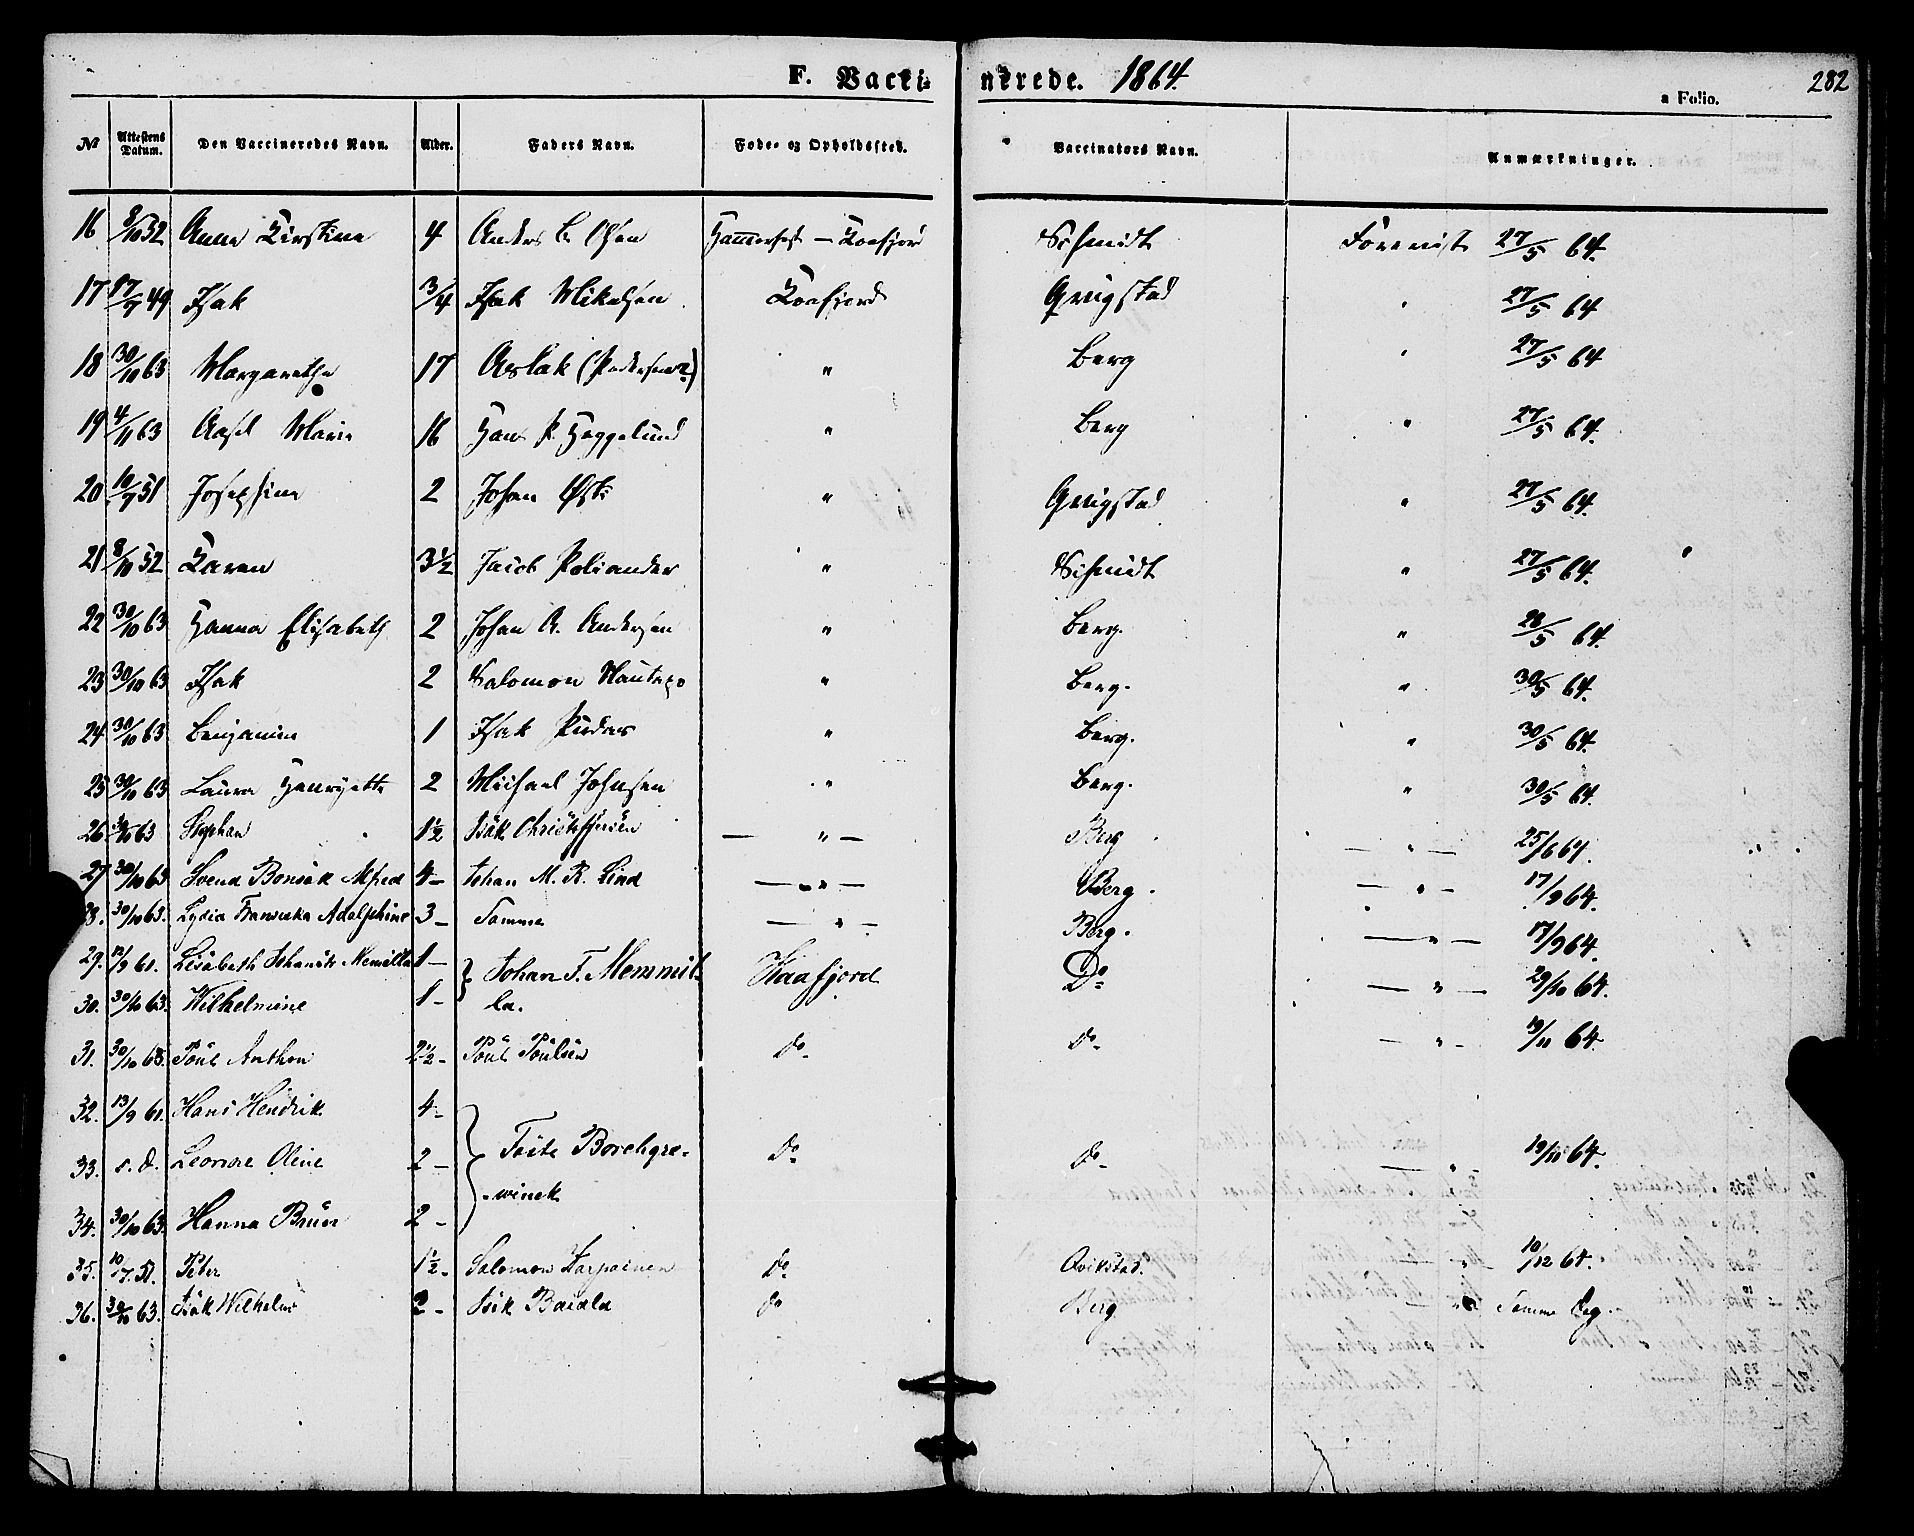 F. Vacci= nerede. 1864. 282
a Folio.
№ Attestens Datum. Den Vaccineredes Navn. Alder. Faders Navn. Føde- og Opholdssted. Vaccinators Navn. Anmærkninger.
16 8/10 52 Anna Kirstina 4 Anders B. Olsen Hammerfest — Kaafjord Schmidt Forevist 27/5 64.
17 17/7 49 Isak 3/4 Isak Mikelsen Kaafjord Qvigstad " 27/5 64
18 30/10 63 Margarethe 17 Aslak (Pedersen?) " Berg " 27/5 64
19 4/11 63 Marie 16 Hans P. Heggelund " Berg " 27/5 64.
20 10/7 51 Josephine 2 Johan " Qvigstad " 27/5 64.
21 8/10 52 Karen 3½ Jacob Poliander " Schmidt " 27/5 64.
22 30/10 63 Hanna Elisabeth 2 Johan A. Andersen " Berg. " 28/5 64.
23 30/10 63 Isak 2 Salomon " Berg. " 30/5 64.
24 30/10 63 Benjamin 1 Isak Pudas " Berg. " 30/5 64.
25 30/10 63 Laura Henryette 2 Michael Johnsen " Berg. " 30/5 64.
26 30/10 63 Stephan 1½ Isak Christophersen — " — Berg — " — 25/6 64.
27 30/10 63 Svend Alfred 4 — Johan M. R. Lind — " — Berg. — " — 17/9 64.
28. 30/10 63. Lydia Franciska Adolphine 3 — Samme — " — Berg. — " — 17/9 64.
29. 12/9 61. Lisabeth 1 — } Johan F. Memmil- Kaafjord Do
30. 30/10 63. Wilhelmine 1 — la. — " — 29/10 64.
31. 30/10 63. Poul Anthon 2½ — Poul Poulsen do. do. — " — 19/11 64.
32. 13/9 61. Hans Hendrik 4 —
33. s. d. Leonore Oline 2 — } Borchgre- do. do. — " — 19/11 64.
-winck
34. 30/10 63. Hanna 2 —
35. 10/7. 51. Peter 1½ — Salomon do. Qvikstad. — " — 10/12 64.
36. 30/10 63. Isak Wilhelm 2 — Isak do Berg " Samme Dag.